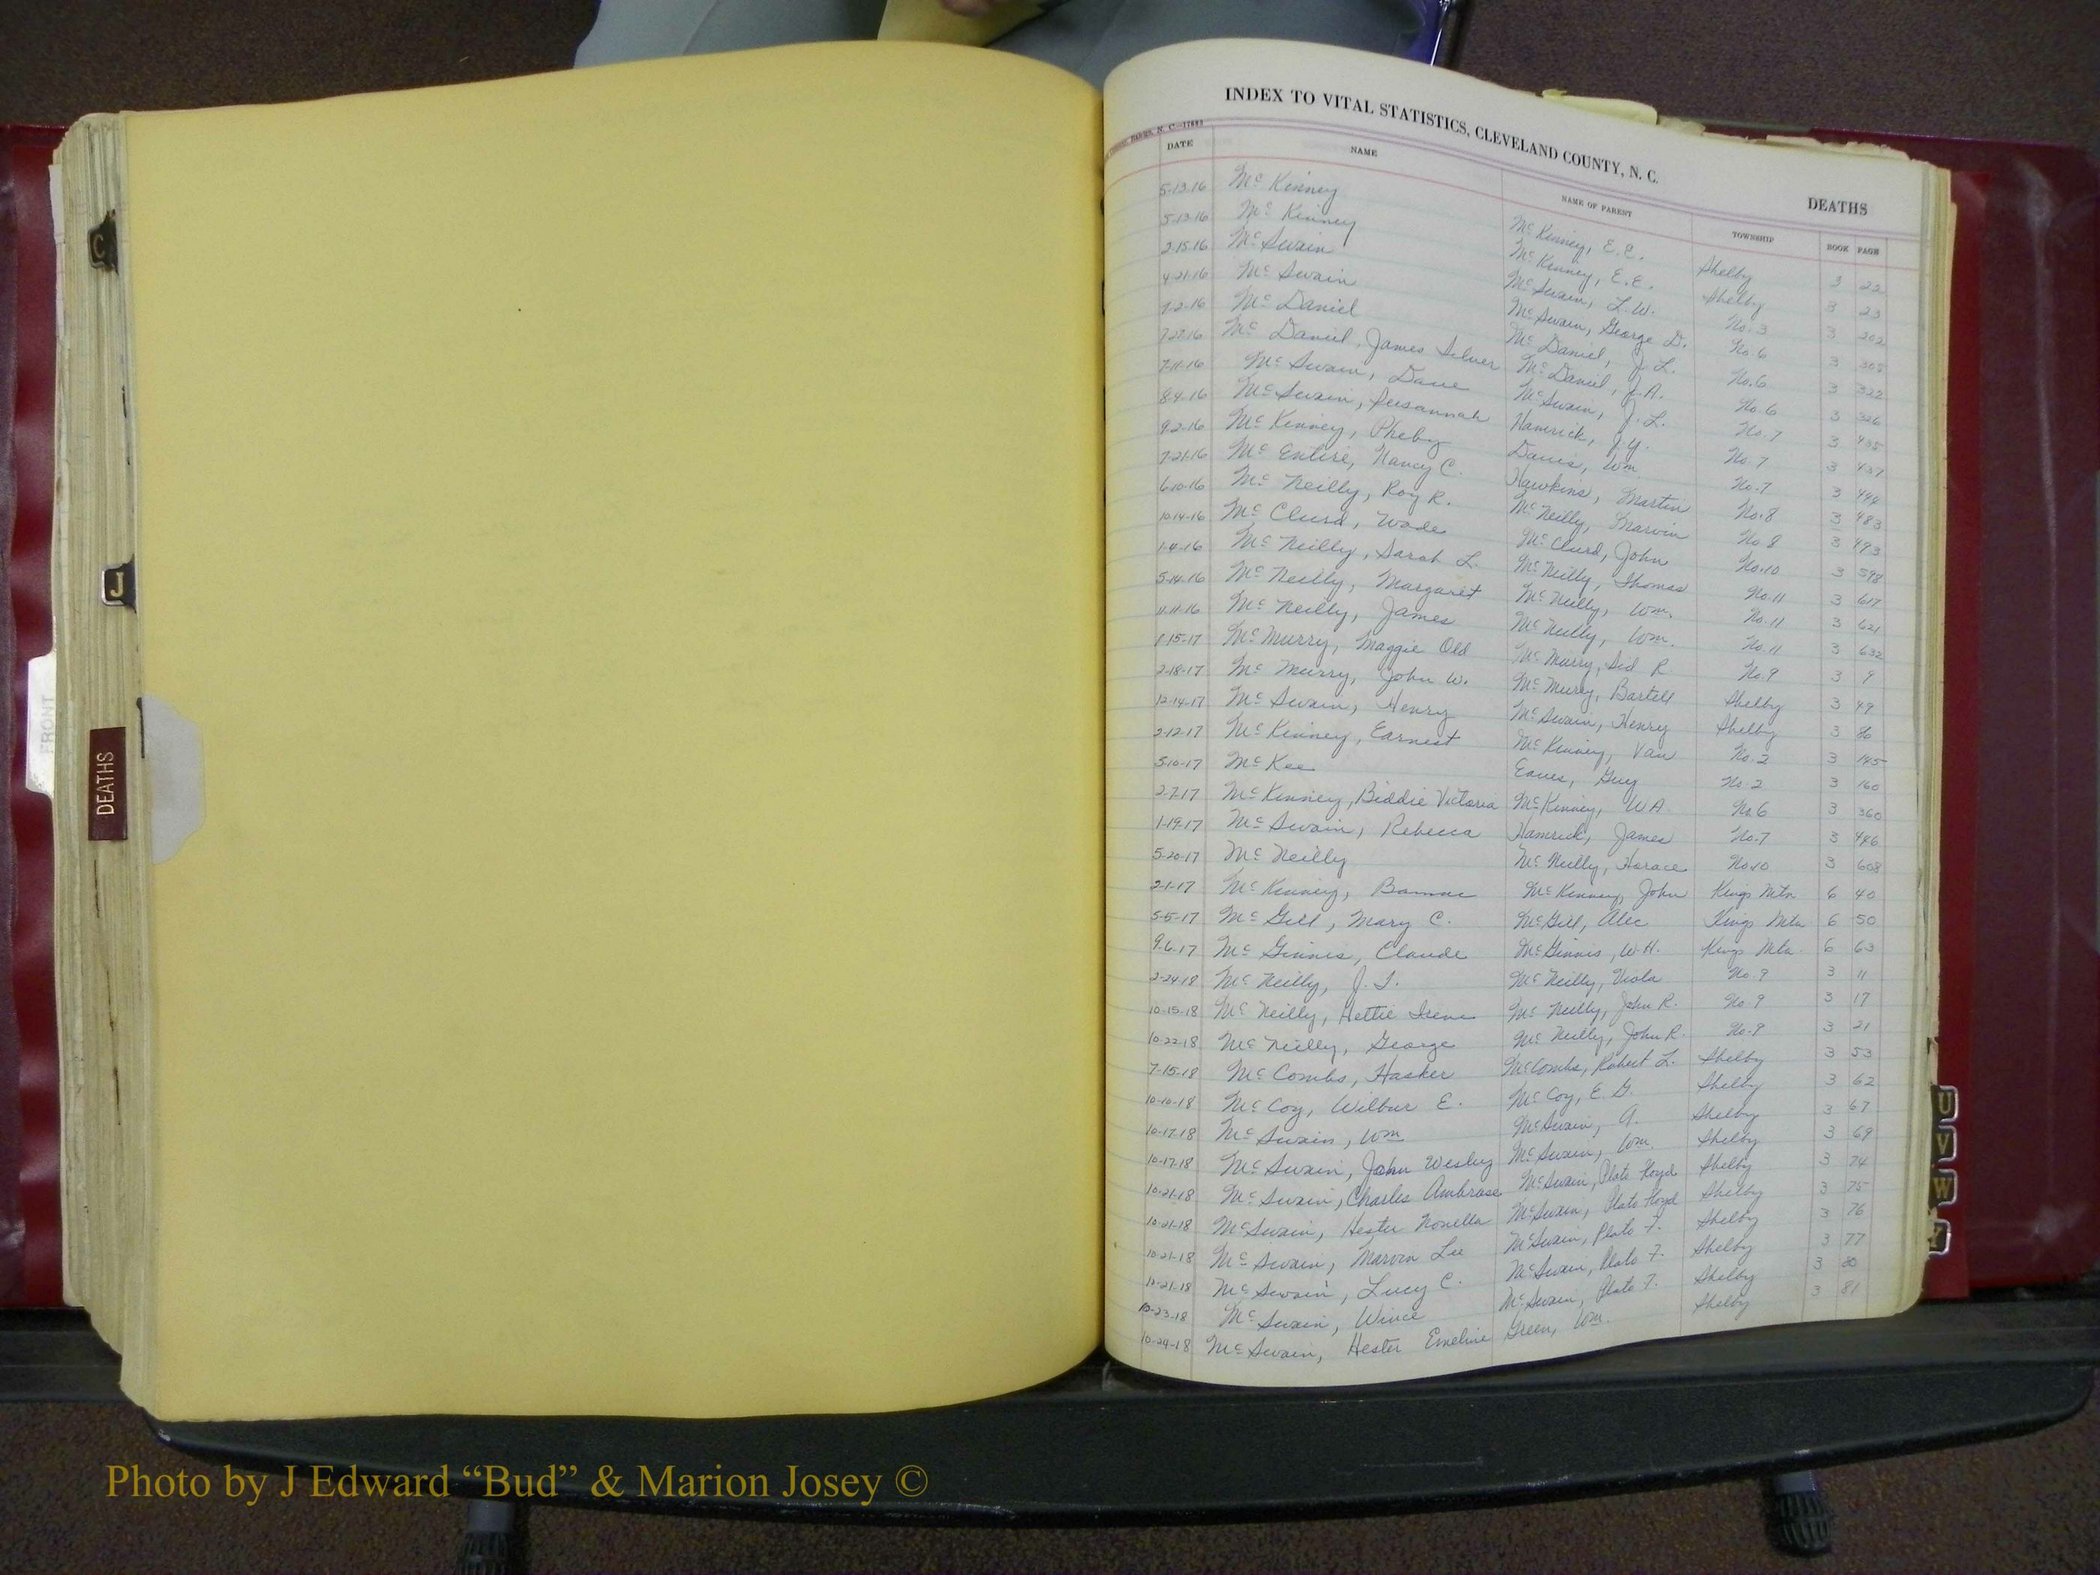 INDEX TO VITAL STATISTICS, CLEVELAND COUNTY, N. C.
DEATHS
DATE NAME NAME OF PARENT TOWNSHIP BOOK PAGE
5-13-16 McKinney McKinney, E. E. Shelby 3 22
5-13-16 McKinney McKinney, E. E. Shelby 3 23
2-15-16 McSwain McSwain, L. W. No. 3 3 202
4-21-16 McSwain McSwain, George D. No. 6 3
7-2-16 McDaniel McDaniel, J. L. No. 6 3 322
7-27-16 McDaniel, James Silver McDaniel, J. A. No. 6 3 326
7-11-16 McSwain, Dave McSwain, J. L. No. 7 3 435
8-4-16 McSwain, Susannah Hamrick, J. Y. No. 7 3 437
9-2-16 McKinney, Pheby Davis, Wm No. 7 3
7-21-16 McEntire, Nancy C. Hawkins, Martin No. 8 3 483
6-10-16 McNeilly, Roy R. McNeilly, Marvin No. 8 3 493
10-14-16 McClurd, Wade McClurd, John No. 10 3 598
1-4-16 McNeilly, Sarah L. McNeilly, Thomas No. 11 3 617
5-14-16 McNeilly, Margaret McNeilly, Wm. No. 11 3 621
11-11-16 McNeilly, James McNeilly, Wm. No. 11 3 632
1-15-17 McMurry, Maggie Old McMurry, Sid R No. 9 3 9
2-18-17 McMurry, John W. McMurry, Bartell Shelby 3 49
12-14-17 McSwain, Henry McSwain, Henry Shelby 3 86
2-12-17 McKinney, Earnest McKinney, Van No. 2 3 145
5-10-17 McKee Eaves, Guy No. 2 3 160
2-7-17 McKinney, Biddie Victoria McKinney, W A No. 6 3 360
1-19-17 McSwain, Rebecca Hamrick, James No. 7 3 446
5-20-17 McNeilly McNeilly, Horace No. 10 3 608
2-1-17 McKinney, McKinney, John Kings Mtn 6 40
5-5-17 McGill, Mary C. McGill, Alec Kings Mtn 6 50
9-6-17 McGinnis, Claude McGinnis, W. H. Kings Mtn 6 63
2-24-18 McNeilly, J. T. McNeilly, Viola No. 9 3 11
10-15-18 McNeilly, Hettie Irene McNeilly, John R. No. 9 3 17
10-22-18 McNeilly, George McNeilly, John R. No. 9 3 21
7-15-18 McCombs, Hasker McCombs, Robert L. Shelby 3 53
10-10-18 McCoy, Wilbur E. McCoy, E. G. Shelby 3 62
10-17-18 McSwain, Wm McSwain, A. Shelby 3 67
10-17-18 McSwain, John Wesley McSwain, Wm. Shelby 3 69
10-21-18 McSwain, Charles Ambrose McSwain, Plato Floyd Shelby 3 74
10-21-18 McSwain, Hester Novella McSwain, Plato Floyd Shelby 3 75
10-21-18 McSwain, Marvin Lee McSwain, Plato F. Shelby 3 76
10-21-18 McSwain, Lucy C. McSwain, Plato F. Shelby 3 77
10-23-18 McSwain, Wince McSwain, Plato F. Shelby 3 80
10-24-18 McSwain, Hester Emeline Green, Wm. Shelby 3 81
C
J
FRONT
DEATHS
U
V
W
Y
Photo by J Edward “Bud” & Marion Josey ©